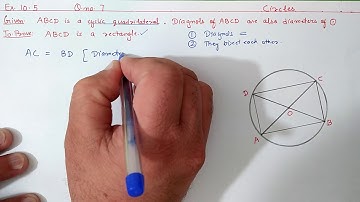 Ex 10.5 Q.no. 7 Circles
Given: ABCD is a cyclic quadrilateral. Diagonals of ABCD are also diameters of ⊙
To Prove: ABCD is a rectangle. ✓
① Diagonals =
② They bisect each other.
AC = BD [ Diameter
D
C
O
A
B